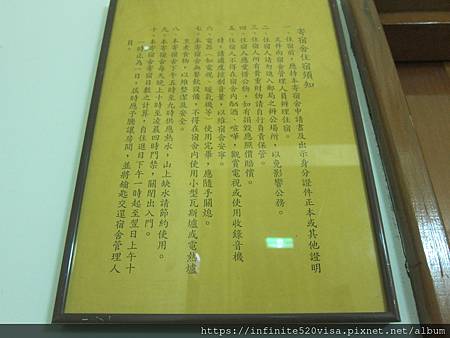 寄宿舍住宿須知
一、住宿前，應持本寄宿舍申請書及出示身分證件正本或其他證明
文件向宿舍管理人員辦理住宿。
二、住宿人請勿進入郵局之辦公場所，以免影響公務。
三、住宿人所有貴重財物請自行負責保管。
四、住宿人應愛惜公物，如有損毀應照價賠償。
五、住宿人不得在宿舍內酗酒、喧嘩，觀賞電視或使用收錄音機
時，請適度控制音量，以維宿舍安寧。
六、電器（如電視、暖氣機等）使用完畢，應隨手關熄。
七、本寄宿舍無炊飲設備，不得在宿舍內使用小型瓦斯爐或電熱爐
烹煮食物，以維整潔及安全。
八、本寄宿舍下午五時至九時供應熱水，山上缺水請節約使用。
九、本寄宿舍每天晚上十時至凌晨四時門禁，關閉出入門。
十、本寄宿舍寄宿日數之計算，自住進日下午一時起至翌日上午十
一時止為一日，依時應予騰讓房間，並將鑰匙交還宿舍管理人
員。
https://infinite520visa.pixnet.net/album